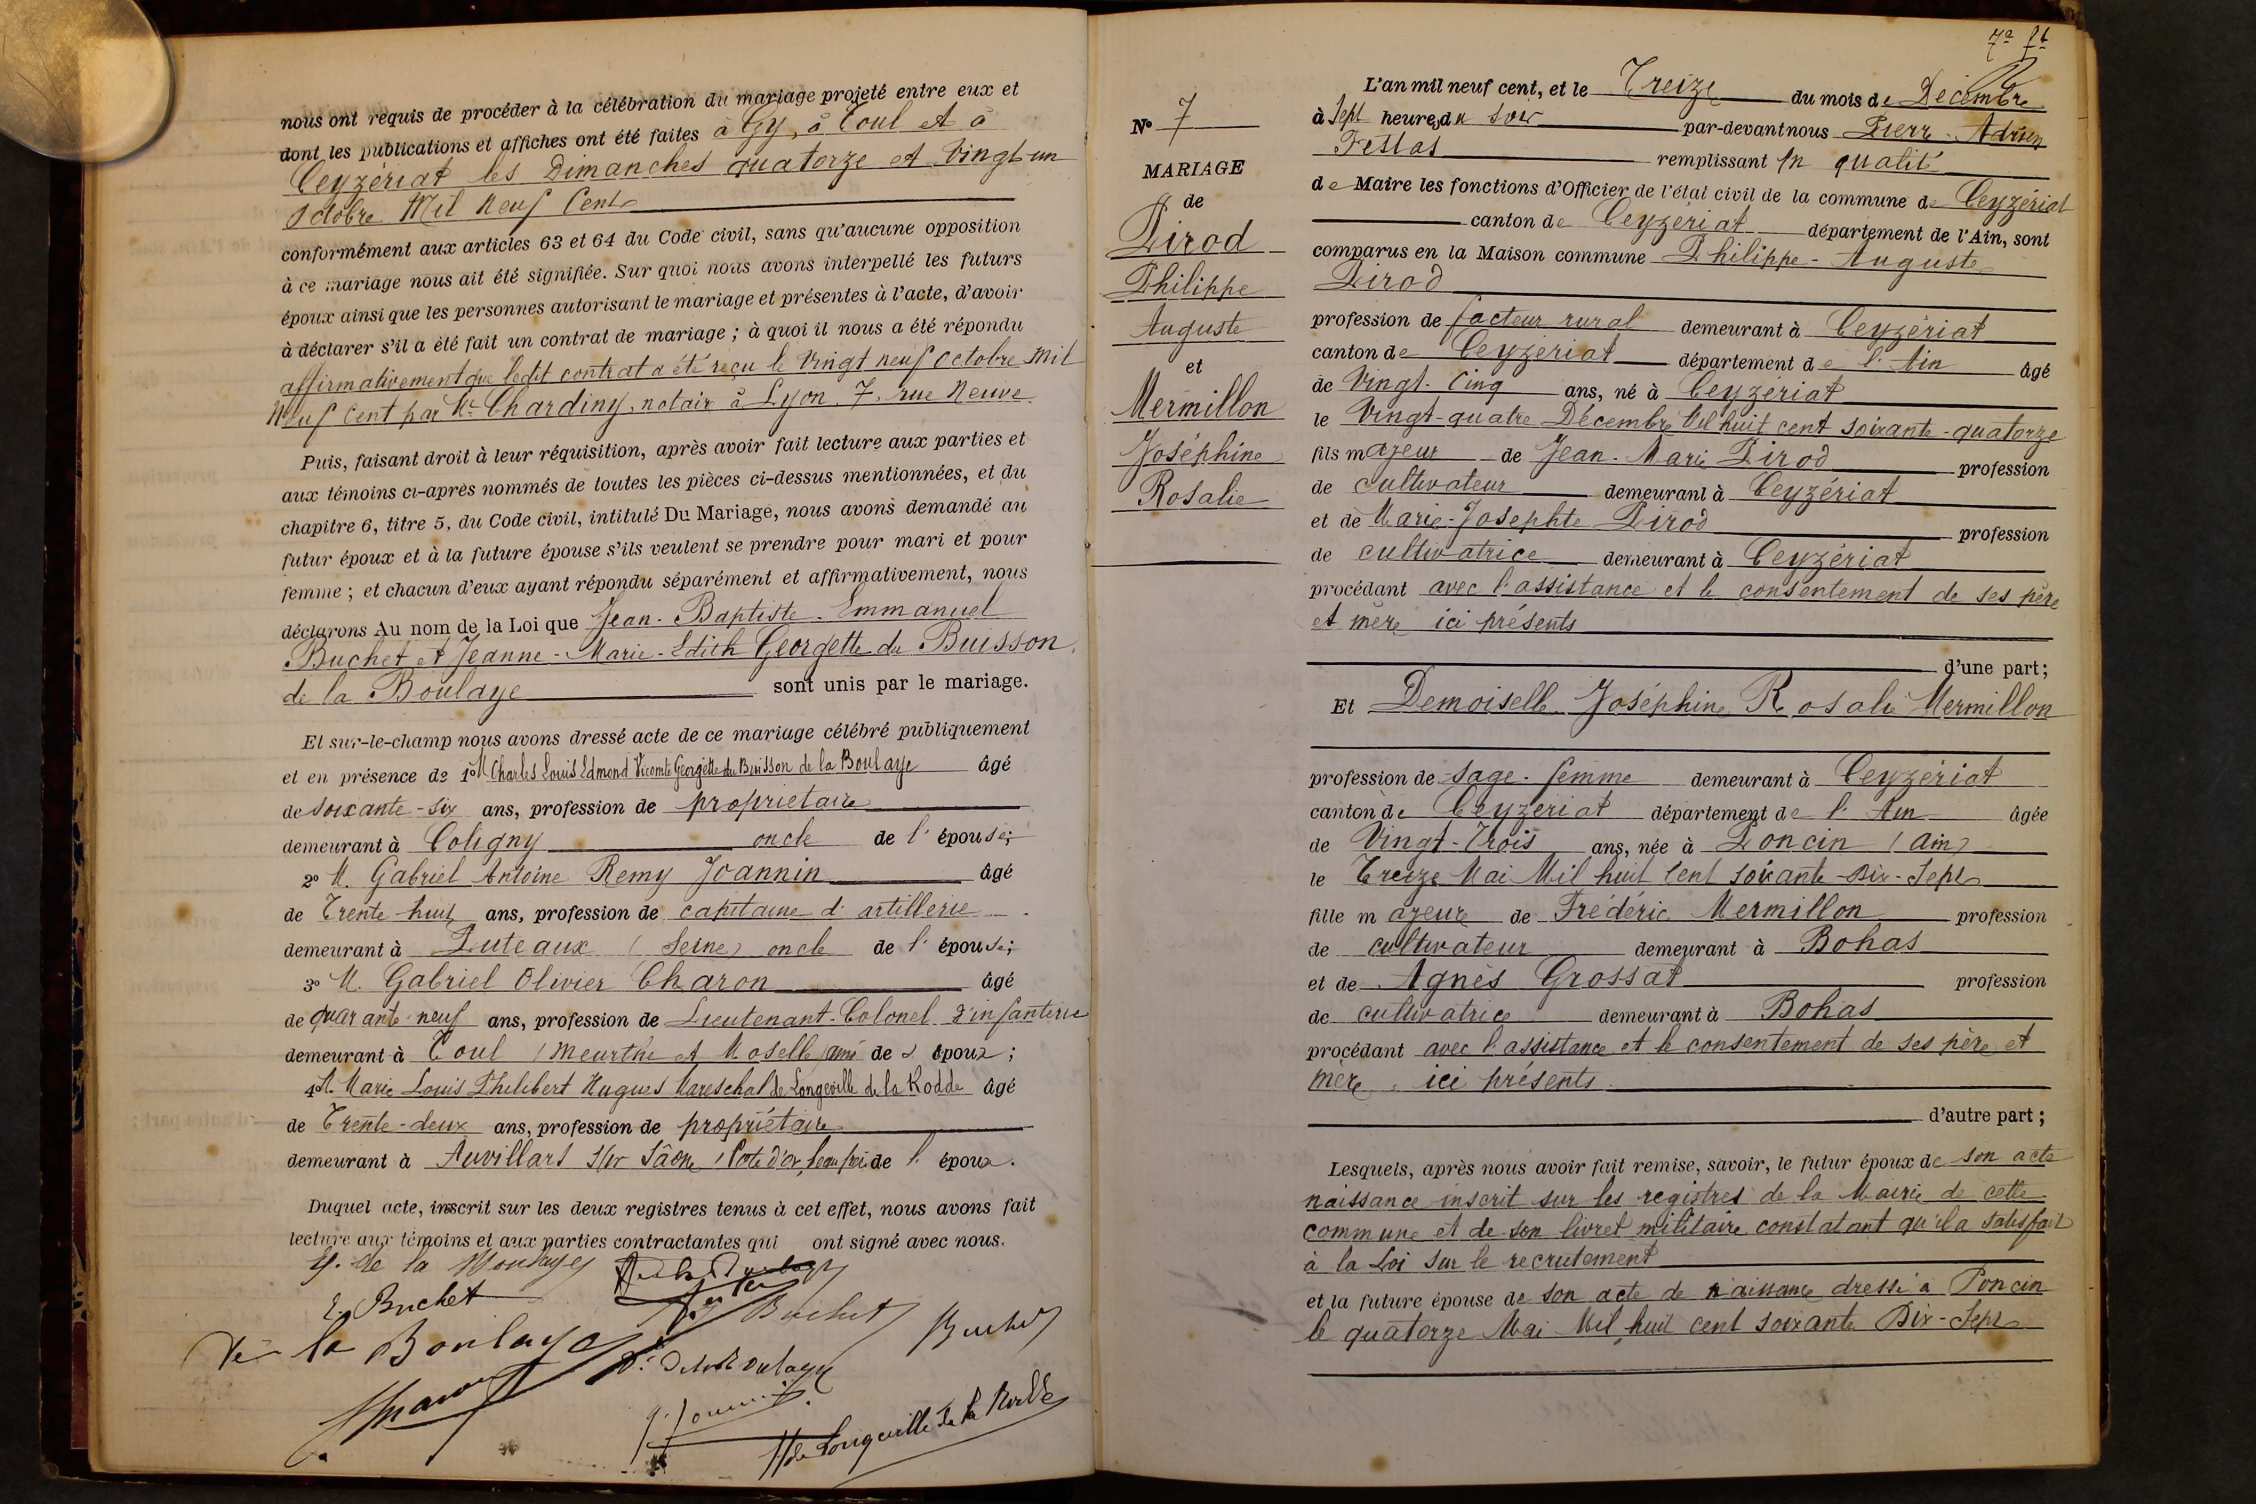 nous ont requis de procéder à la célébration du mariage projeté entre eux et
dont les publications et affiches ont été faites à Gy, à Toul et à
Ceyzériat les Dimanches quatorze et Vingt un
octobre Mil neuf Cent
conformément aux articles 63 et 64 du Code civil, sans qu'aucune opposition
à ce mariage nous ait été signifiée. Sur quoi nous avons interpellé les futurs
époux ainsi que les personnes autorisant le mariage et présentes à l'acte, d'avoir
à déclarer s'il a été fait un contrat de mariage ; à quoi il nous a été répondu
affirmativement que ledit contrat a été reçu le Vingt neuf octobre Mil
Neuf Cent par Me Chardiny, notaire à Lyon, 7, rue Neuve.
Puis, faisant droit à leur réquisition, après avoir fait lecture aux parties et
aux témoins ci-après nommés de toutes les pièces ci-dessus mentionnées, et du
chapitre 6, titre 5, du Code civil, intitulé Du Mariage, nous avons demandé au
futur époux et à la future épouse s'ils veulent se prendre pour mari et pour
femme ; et chacun d'eux ayant répondu séparément et affirmativement, nous
déclarons Au nom de la Loi que Jean-Baptiste-Emmanuel
Buchet et Jeanne-Marie-Edith Georgette du Buisson
de la Boulaye sont unis par le mariage.
Et sur-le-champ nous avons dressé acte de ce mariage célébré publiquement
et en présence de 1° M Charles Louis Edmond Vicomte Georgette du Buisson de la Boulaye âgé
de soixante-six ans, profession de propriétaire
demeurant à Coligny oncle de l'épouse;
2° M. Gabriel Antoine Remy Joannin âgé
de Trente huit ans, profession de capitaine d'artillerie
demeurant à Puteaux (Seine) oncle de l'épouse;
3° M. Gabriel Olivier Charon âgé
de quarante neuf ans, profession de Lieutenant-Colonel d'infanterie
demeurant à Toul (Meurthe et Moselle) ami de l'époux;
4° M. Marie Louis Philibert Hugues Mareschal de Longeville de la Rodde âgé
de Trente-deux ans, profession de propriétaire
demeurant à Auvillars s/r Sâone (Côte d'or) beau frère de l'époux.
Duquel acte, inscrit sur les deux registres tenus à cet effet, nous avons fait
lecture aux témoins et aux parties contractantes qui ont signé avec nous.
G. de la Boulaye
E. Buchet
Buchet
Buchet
de la Boulaye
de la Boulaye
Charon
G. Joannin
H de Longeville de la Rodde
7
N° 7
MARIAGE
de
Pirod
Philippe
Auguste
et
Mermillon
Joséphine
Rosalie
L'an mil neuf cent, et le Treize du mois de Décembre
à Sept heures du soir par-devant nous Pierre-Adrien
Festas remplissant en qualité
de Maire les fonctions d'Officier de l'état civil de la commune de Ceyzériat
canton de Ceyzériat département de l'Ain, sont
comparus en la Maison commune Philippe-Auguste
Pirod
profession de facteur rural demeurant à Ceyzériat
canton de Ceyzériat département de l'Ain âgé
de Vingt-Cinq ans, né à Ceyzériat
le Vingt-quatre Décembre Mil huit cent soixante-quatorze
fils majeur de Jean-Marie Pirod profession
de cultivateur demeurant à Ceyzériat
et de Marie-Josephte Pirod profession
de cultivatrice demeurant à Ceyzériat
procédant avec l'assistance et le consentement de ses père
et mère ici présents
d'une part;
Et Demoiselle Joséphine Rosalie Mermillon
profession de sage-femme demeurant à Ceyzériat
canton de Ceyzériat département de l'Ain âgée
de Vingt-Trois ans, née à Poncin (Ain)
le Treize Mai Mil huit Cent soixante-Dix-Sept
fille majeure de Frédéric Mermillon profession
de cultivateur demeurant à Bohas
et de Agnès Grossat profession
de cultivatrice demeurant à Bohas
procédant avec l'assistance et le consentement de ses père et
mère, ici présents
d'autre part;
Lesquels, après nous avoir fait remise, savoir, le futur époux de son acte
naissance inscrit sur les registres de la Mairie de cette
commune et de son livret militaire constatant qu'il a satisfait
à la Loi sur le recrutement
et la future épouse de son acte de naissance dressé à Poncin
le quatorze Mai Mil huit cent soixante Dix-Sept